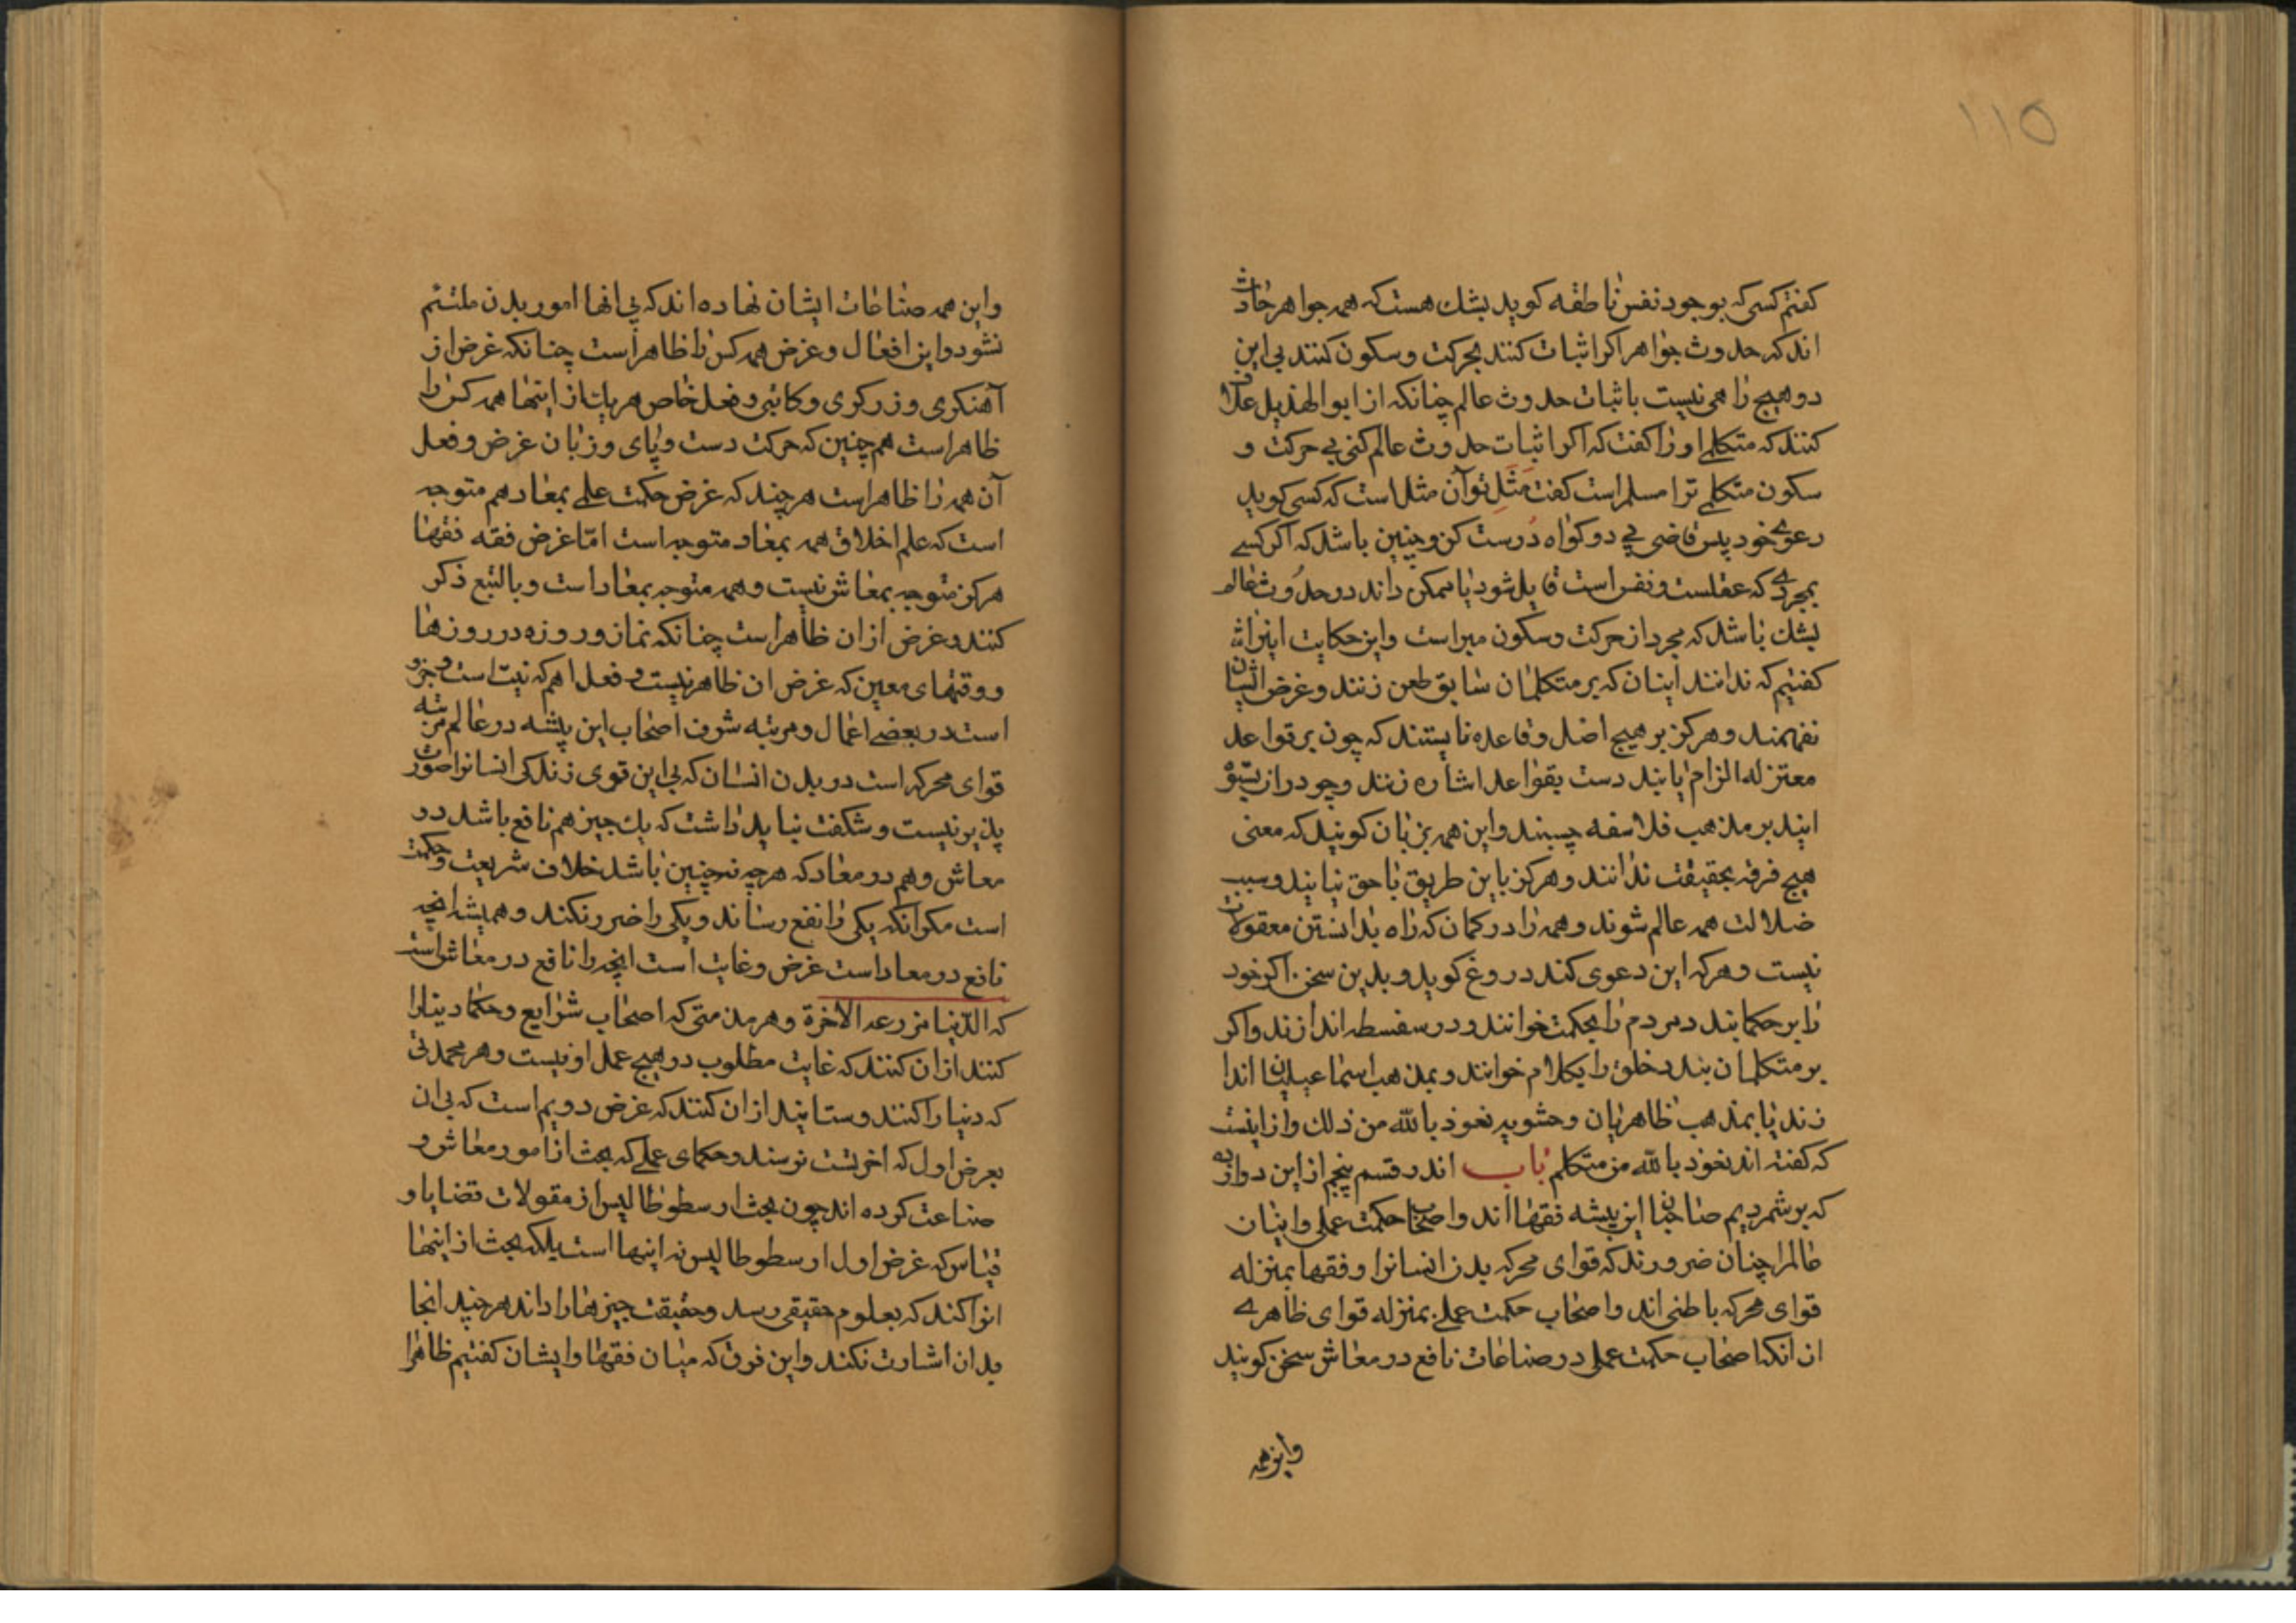 ۱۱۵
کفتم کسی که بوجود نفس ناطقه کوید بشك هست که همه جواهر حادث
اند که حدوث جواهر اکر اثبات کنند بحرکت و سکون کنند بی این
دو هیچ راهی نیست باثبات حدوث عالم چنانکه از ابو الهذیل علاف
کنند که متکلمی او را کفت که اکر اثبات حدوث عالم کنی بی حرکت و
سکون متکلمی ترا مسلم است کفت مثل تو آن مثل است که کسی کوید
دعوی خود پیش قاضی بی دو کواه درست کن و چنین باشد که اکر کسی
بمجردی که عقلست و نفس است قایل شود یا ممکن داند در حدوث عالم
بشك باشد که مجرد از حرکت و سکون مبراست و این حکایت
کفتیم که ندانند اینان که بر متکلمان سابق طعن زنند و غرض ایشان
نفهمند و هرکز بر هیچ اصل و قاعده نایستند که چون بر قواعد
معتزله الزام یابند دست بقواعد اشاعره زنند و چو در از پیش
ایند بر مذهب فلاسفه چسبند و این همه بزبان کویند که معنی
هیچ فرقه بحقیقت ندانند و هرکز باین طریق با حق نیایند و سبب
ضلالت همه عالم شوند و همه را در کمان که راه بدانستن معقولات
نیست و هرکه این دعوی کند دروغ کوید و بدین سخن اکر خود
را بر حکما بندد مردم را بحکمت خوانند و در سفسطه اندازند و اکر
بر متکلمان بندد خلق را بکلام خوانند و بمذهب اسماعیلیان اندا
زند یا بمذهب ظاهریان و حشویه نعوذ بالله من ذلك و از اینست
که کفته اند نعوذ بالله من متکلم باب اند در قسم پنجم از این دوازده
که بر شمردیم صاحبان این پیشه فقها اند و اصحاب حکمت عملی و ایشان
عالم را چنان ضرورند که قوای محرکه بدن انسانرا و فقها بمنزله
قوای محرکه باطنی اند و اصحاب حکمت عملی بمنزله قوای ظاهری
ان انکه اصحاب حکمت عملی در صناعات نافع در معاش سخن کویند
و این همه
و این همه صناعات ایشان نهاده اند که بی انها امور بدن ملتئم
نشود و این افعال و غرض همه کس را ظاهر است چنانکه غرض از
آهنکری و زرکری و کاتبی و فعل خاص هر یك از اینها همه کس را
ظاهر است هم چنین که حرکت دست و پای و زبان غرض و فعل
آن همه را ظاهر است هر چند که غرض حکمت عملی بمعاد هم متوجه
است که علم اخلاق همه بمعاد متوجه است امّا غرض فقه فقها
هرکز متوجه بمعاش نیست و همه متوجه بمعاد است و بالتبع ذکر
کنند و غرض از ان ظاهر است چنانکه نماز و روزه در روزها
و وقتهای معین که غرض ان ظاهر نیست و فعل اهم که نیت است و جزو
است در بعضی اعمال و مرتبه شرف اصحاب این پیشه در عالم مرتبه
قوای محرکه است در بدن انسان که بی این قوی زندکی انسانرا صورت
پذیر نیست و شکفت نباید داشت که یك چیز هم نافع باشد در
معاش و هم در معاد که هرچه نه چنین باشد خلاف شریعت و حکمت
است مکر انکه یکی را نفع رساند و یکی را ضرر نکند و همیشه انچه
نافع در معاد است غرض و غایت است انچه را نافع در معاش است
که الدّنیا مزرعه الاخرة و هر مذمتی که اصحاب شرایع و حکما دینارا
کنند از ان کنند که غایت مطلوب در هیچ عمل او نیست و هر محمدتی
که دنیا را کنند و ستایند از ان کنند که غرض دویم است که بی ان
بغرض اول که اخرتست نرسند و حکمای عملی که بحث از امور معاش و
صناعت کرده اند چون بحث ارسطوطالیس از مقولات قضایا و
قیاس که غرض اول ارسطوطالیس نه اینها است بلکه بحث از اینها
انرا کند که بعلوم حقیقی رسد و حقیقت چیزها را داند هر چند انجا
بدان اشارت نکند و این فرق که میان فقها و ایشان کفتیم ظاهرا